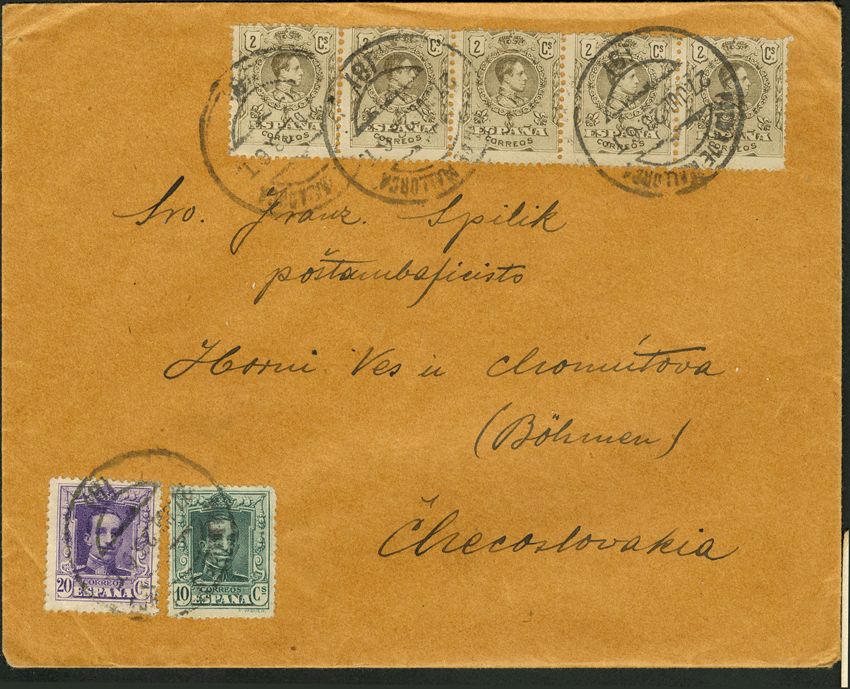 2 Cs 2 Cs 2 Cs 2 Cs 2 Cs
ESPAÑA ESPAÑA ESPAÑA ESPAÑA ESPAÑA
CORREOS CORREOS CORREOS CORREOS CORREOS
MALLORCA MALLORCA MALLORCA
Sro. Franz. Spilik
Horni Ves u Chomútova
(Böhmen)
Čhecoslovakia
CORREOS CORREOS
20 ESPAÑA Cs 10 ESPAÑA Cs